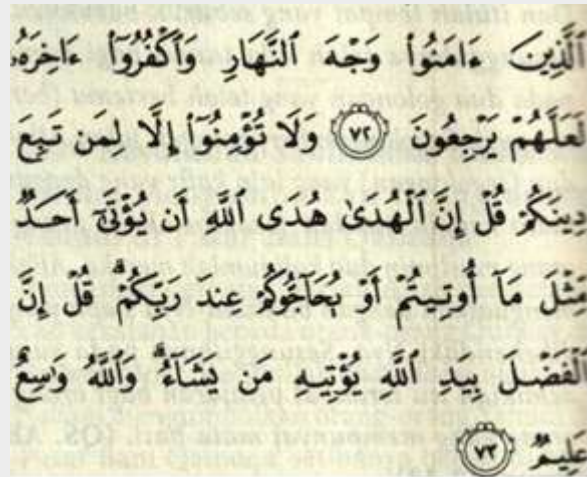 ٱلَّذِينَ ءَامَنُوا۟ وَجْهَ ٱلنَّهَارِ وَٱكْفُرُوٓا۟ ءَاخِرَهُۥ
لَعَلَّهُمْ يَرْجِعُونَ ٧٢ وَلَا تُؤْمِنُوٓا۟ إِلَّا لِمَن تَبِعَ
دِينَكُمْ قُلْ إِنَّ ٱلْهُدَىٰ هُدَى ٱللَّهِ أَن يُؤْتَىٰٓ أَحَدٌ
مِّثْلَ مَآ أُوتِيتُمْ أَوْ يُحَآجُّوكُمْ عِندَ رَبِّكُمْ ۗ قُلْ إِنَّ
ٱلْفَضْلَ بِيَدِ ٱللَّهِ يُؤْتِيهِ مَن يَشَآءُ ۗ وَٱللَّهُ وَٰسِعٌ
عَلِيمٌ ٧٣